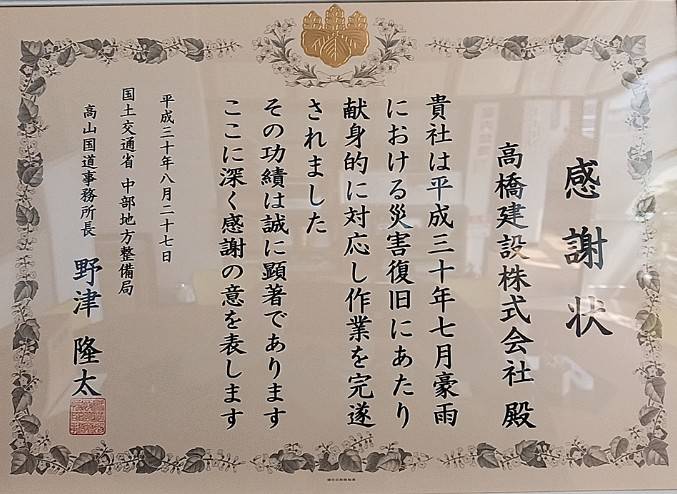 感謝状
高橋建設株式会社 殿
貴社は平成三十年七月豪雨
における災害復旧にあたり
献身的に対応し作業を完遂
されました
その功績は誠に顕著であります
ここに深く感謝の意を表します
平成三十年八月二十七日
国土交通省 中部地方整備局
高山国道事務所長 野津 隆太